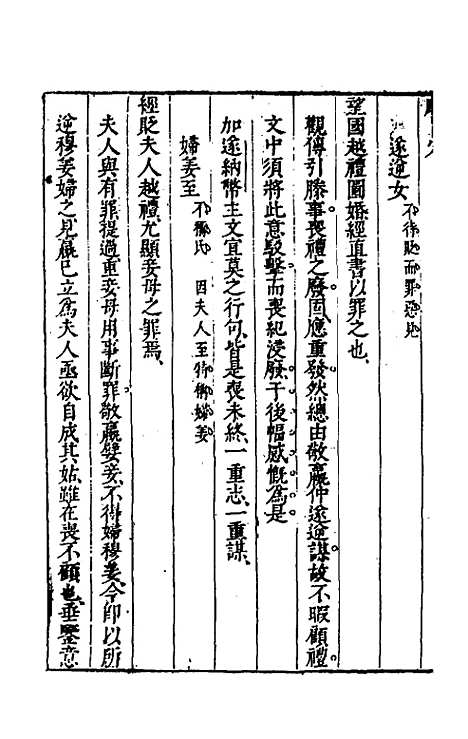 遂逆女　不待貶而罪惡見
望國越禮圖婚經直書以罪之也
觀傳引滕事喪禮之廢固應重發然總由敬嬴仲遂逆謀故不暇顧禮
文中須將此意駁擊而喪紀浸廢于後幅感慨爲是
加遂納幣主文宜莫之行句皆是喪未終一重志一重謀
婦姜至　不稱氏　因夫人至特稱婦姜
經貶夫人越禮尤顯妾母之罪焉
夫人與有罪提過重妾母用事斷罪敬嬴嬖妾不得婦穆姜今卽以所
逆穆姜婦之見嬴已立爲夫人亟欲自成其姑雖在喪不顧也垂鑒意